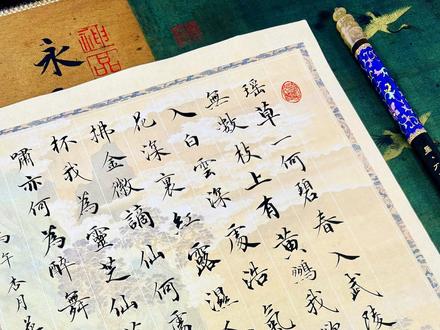 瑶草一何碧春入武陵
無數枝上有黃鸝我欲
入白雲深處浩氣
花深裏紅露濕
拂金徽謫仙何處
杯我為靈芝仙草
嘯亦何為醉舞
丙午杏月
永
神品